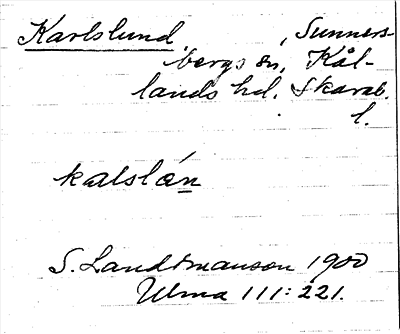 Karlslund, Sunners-
bergs sn, Kål-
lands hd. Skarab.
l.
kalslán
S. Landtmanson 1900
Ulma 111:221.